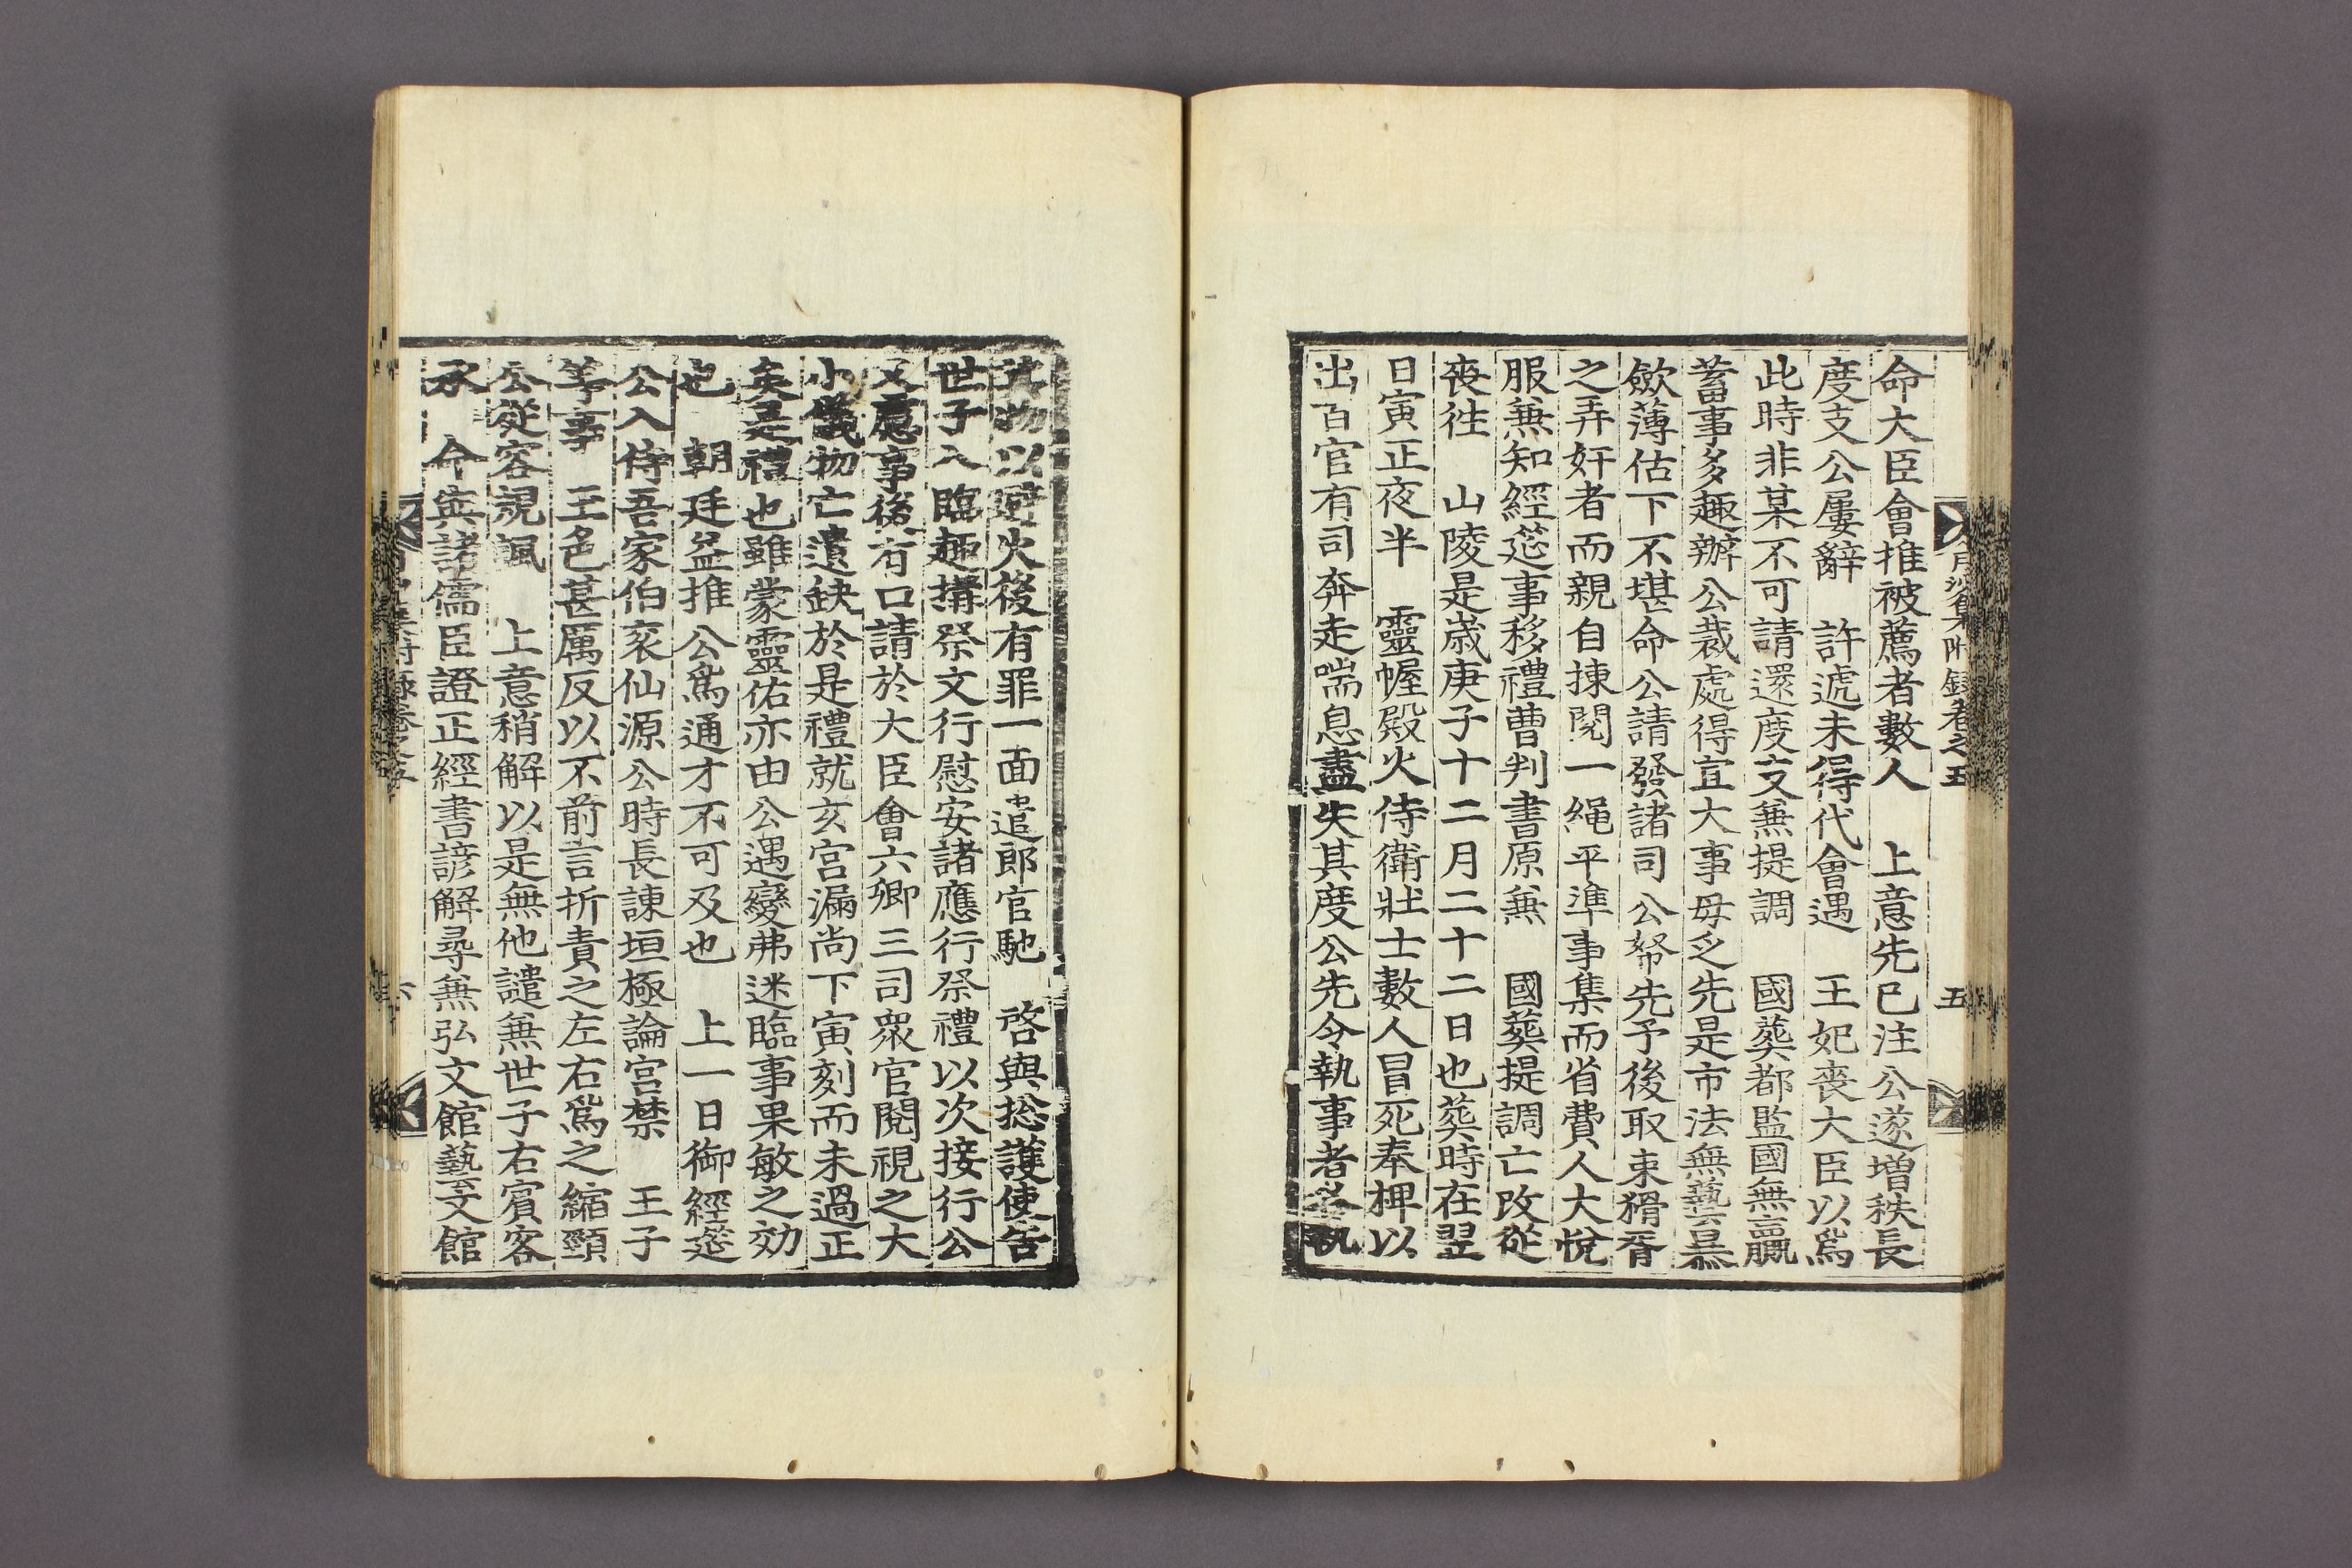 命大臣會推被薦者數人　上意先已注公遂增秩長
度支公屢辭　許遞未得代會遇　王妃喪大臣以爲
此時非某不可請還度支兼提調　國葬都監國無贏
蓄事多趣辦公裁處得宜大事毋乏先是市法無藝暴
歛薄估下不堪命公請發諸司公帑先予後取束猾胥
之弄奸者而親自揀閱一繩平準事集而省費人大悅
服兼知經筵事移禮曹判書原兼　國葬提調亡改從
喪徃　山陵是歲庚子十二月二十二日也葬時在翌
日寅正夜半　靈幄殿火侍衛壯士數人冒死奉椑以
出百官有司奔走喘息盡失其度公先令執事者各執
其物以避火後有罪一面追郎官馳　啓與捴護使告
世子入臨趣搆祭文行慰安諸應行祭禮以次接行公
又慮事後有口請於大臣會六卿三司衆官閱視之大
小儀物亡遺缺於是禮就玄宮漏尚下寅刻而未過正
矣是禮也雖蒙靈佑亦由公遇變弗迷臨事果敏之効
也　朝廷益推公爲通才不可及也　上一日御經筵
公入侍吾家伯衮仙源公時長諫垣極論宮禁　王子
等事　王色甚厲反以不前言折責之左右爲之縮頸
公從容規諷　上意稍解以是無他譴兼世子右賓客
承　命與諸儒臣證正經書諺解尋兼弘文館藝文館
月沙集附錄卷之五
五
六